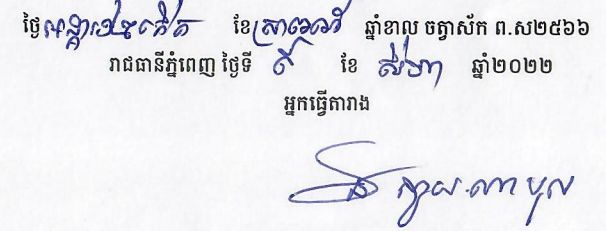 ថ្ងៃអង្គារ ១២កើត ខែស្រាពណ៍ ឆ្នាំខាល ចត្វាស័ក ព.ស២៥៦៦
រាជធានីភ្នំពេញ ថ្ងៃទី ៩ ខែ សីហា ឆ្នាំ២០២២
អ្នកធ្វើតារាង